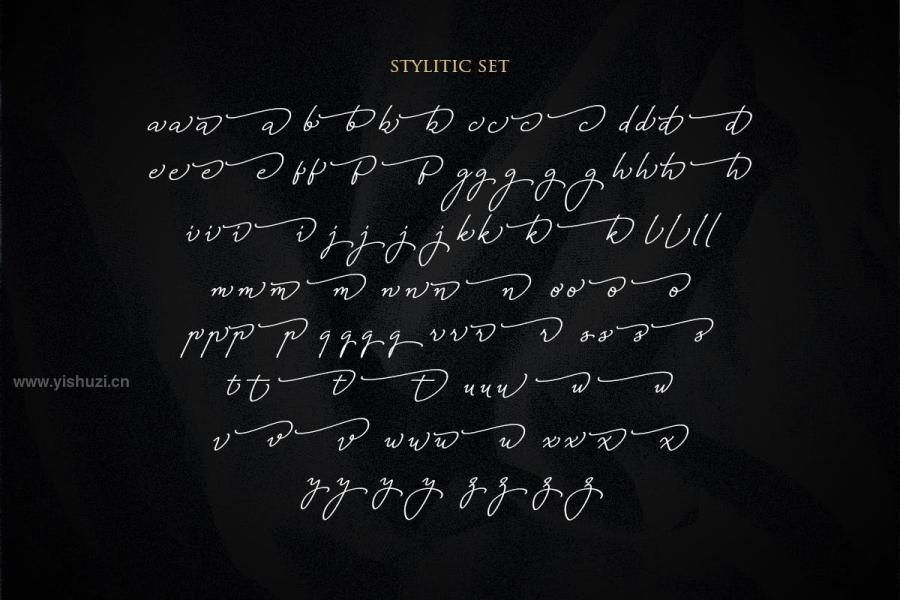 STYLITIC SET
aaaa bbbb cccc dddd
eeee ffff ggggg hhhh
iiii jjjj kkkk llll
mmmm nnnn oooo
pppp qqqq rrrr ssss
tttt uuuuu
vvv wwww xxxx
yyyy zzzz
www.yishuzi.cn